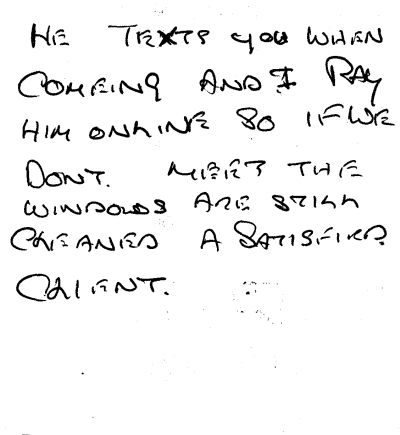 HE TEXTS YOU WHEN
COMEING AND I PAY
HIM ONLINE SO IF WE
DONT. MEET THE
WINDOWS ARE STILL
CLEANED A SATISFIED
CLIENT.